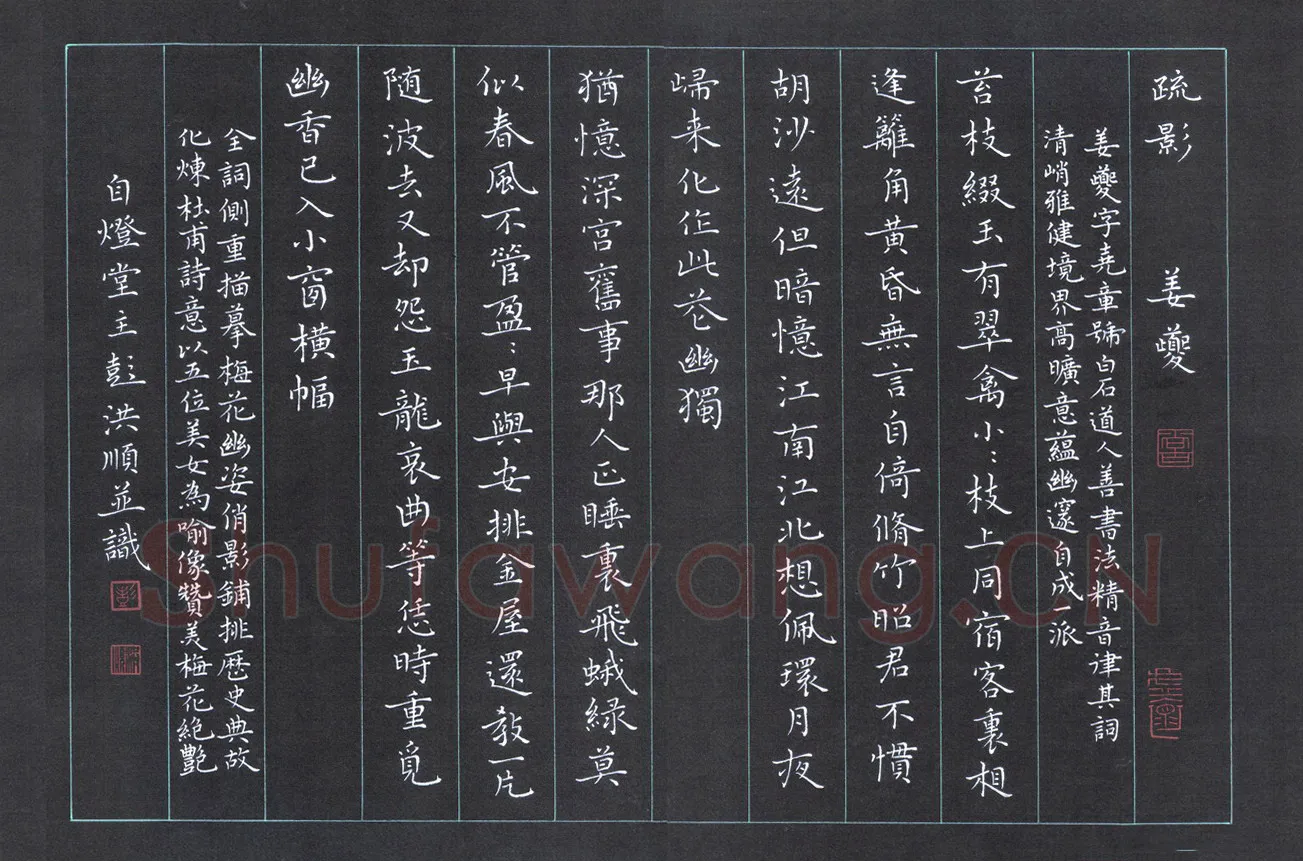 疏影 姜夔
姜夔字堯章號白石道人善書法精音律其詞
清峭雅健境界高曠意蘊幽邃自成一派
苔枝綴玉有翠禽小：枝上同宿客裏相
逢籬角黄昏無言自倚脩竹昭君不慣
胡沙遠但暗憶江南江北想佩環月夜
歸来化作此花幽獨
猶憶深宮舊事那人正睡裏飛蛾緑莫
似春風不管盈：早與安排金屋還教一片
随波去又却怨玉龍哀曲等恁時重覓
幽香已入小窗横幅
全詞側重描摹梅花幽姿俏影鋪排歷史典故
化煉杜甫詩意以五位美女為喻像贊美梅花絶艷
自燈堂主彭洪順並識
Shufawang.CN